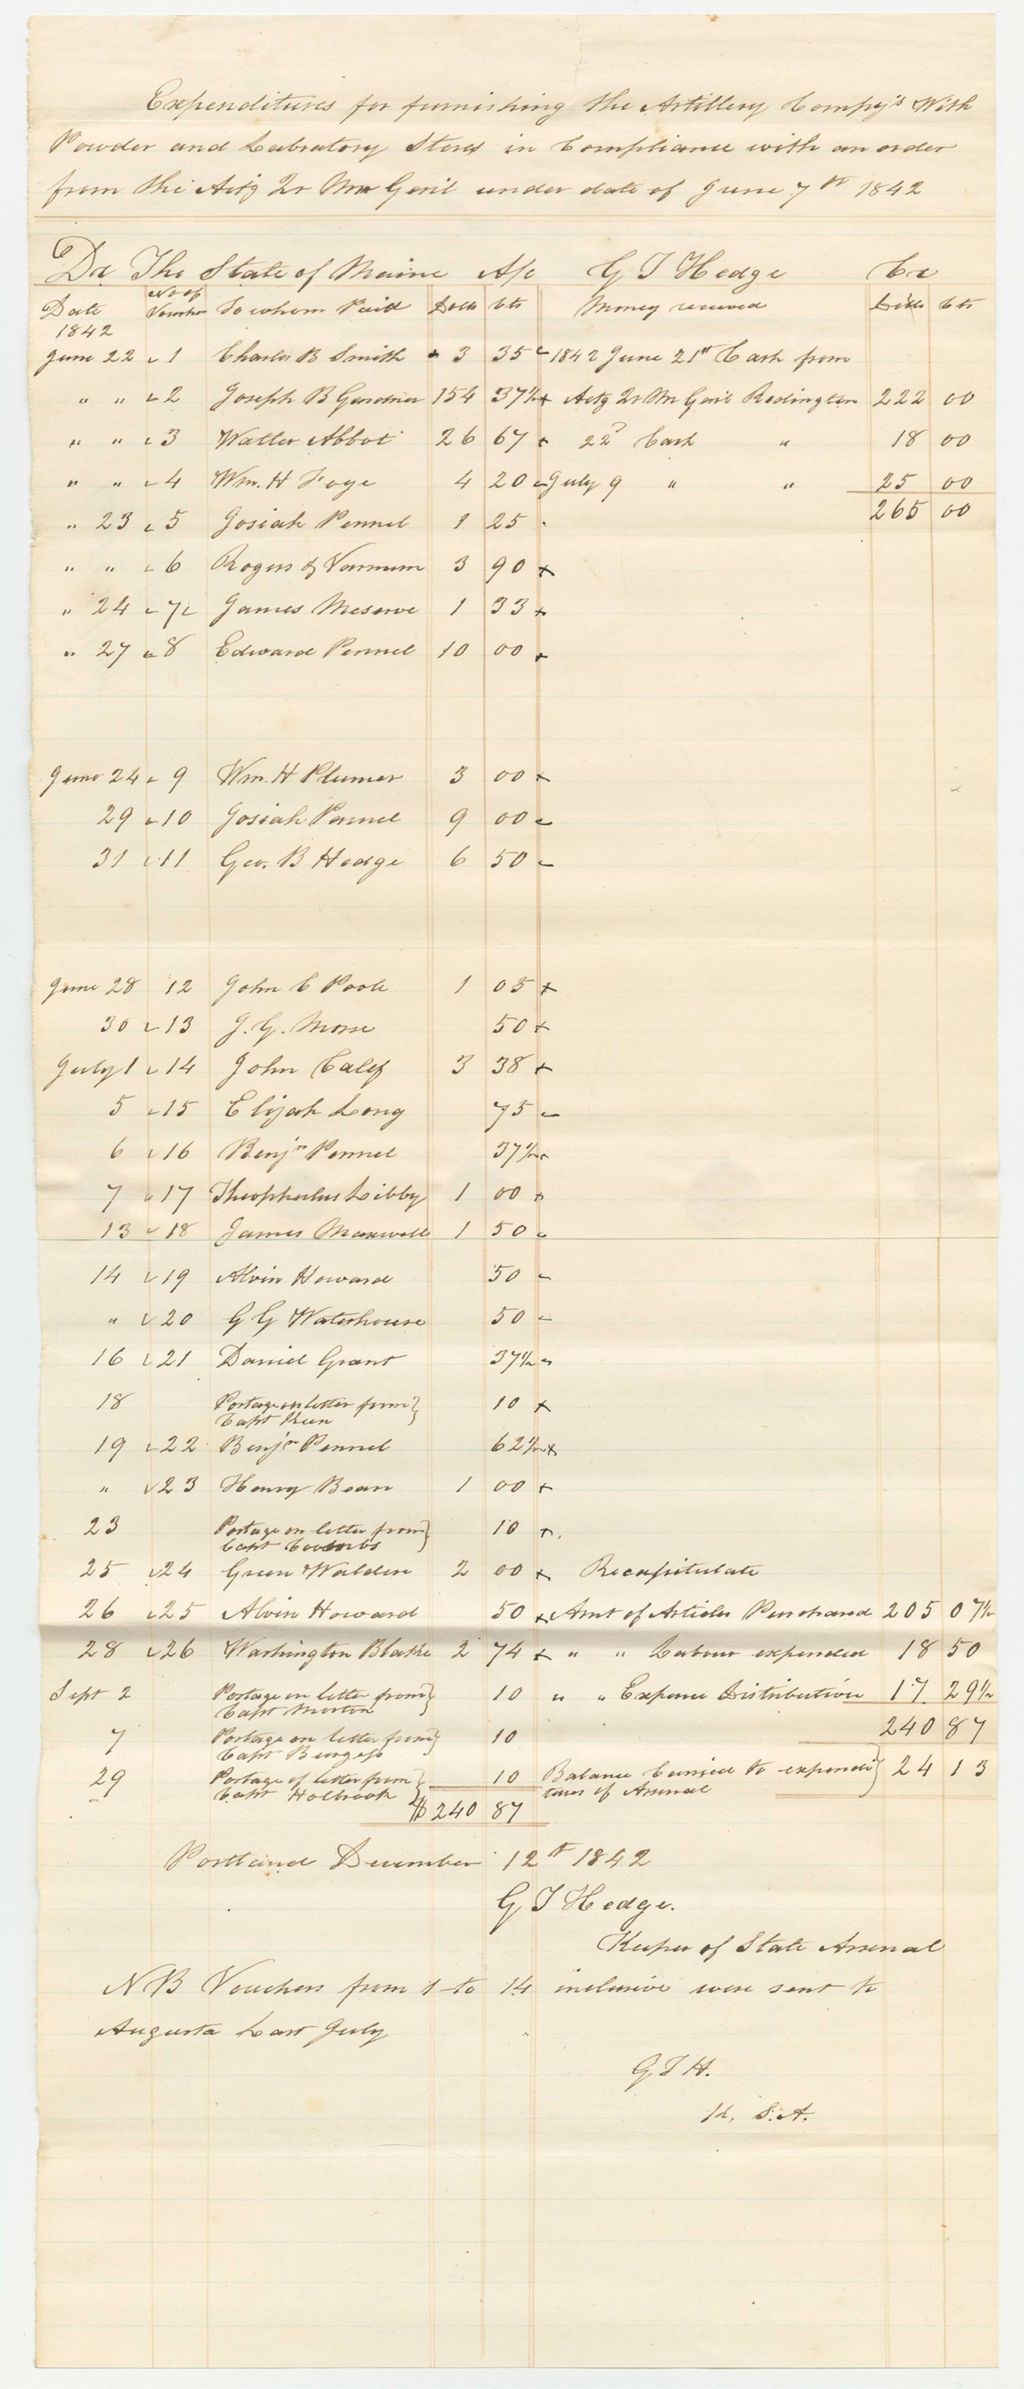 Expenditures for furnishing the Artillery Compy's With
Powder and Labratory Stores in Compliance with an order
from the Act'g Qr Mr Gen'l under date of June 7th 1842
Dr The State of Maine A/c G T Hedge Cr
Date No of Voucher To whom Paid Dolls Cts Money received Dolls Cts
1842
June 22 1 Charles B Smith 3 35 1842 June 21st Cash from
" " 2 Joseph B Gardner 154 37½ Actg Qr M Genl Redington 222 00
" " 3 Walter Abbot 26 67 22d Cash " 18 00
" " 4 Wm. H Foye 4 20 July 9 " " 25 00
" 23 5 Josiah Pennel 1 25 265 00
" " 6 Rogers & Varnum 3 90
" 24 7 James Meserve 1 33
" 27 8 Edward Pennel 10 00
June 24 9 Wm. H Plumer 3 00
29 10 Josiah Pennel 9 00
31 11 Geo. B Hedge 6 50
June 28 12 John C Poole 1 05
30 13 J. G. Morse 50
July 1 14 John Calef 3 38
5 15 Elijah Long 75
6 16 Benjn Pennel 37½
7 17 Theopholus Libby 1 00
13 18 James Maxwell 1 50
14 19 Alvin Howard 50
" 20 G G Waterhouse 50
16 21 Daniel Grant 37½
18 Postage on letter from 10
Capt
19 22 Benjn Pennel 62½
" 23 Henry Bean 1 00
23 Postage on letter from 10
Capt Coombs
25 24 Green Walden 2 00 Recapitulate
26 25 Alvin Howard 50 Amt of Articles Purchased 205 07½
28 26 Washington Blake 2 74 " " Labour expended 18 50
Sept 2 Postage on letter from 10 " " Expense Distribution 17 29½
Capt Morton
7 Postage on letter from 10 240 87
Capt Burgess
29 Postage of letter from 10 Balance Carried to expendi 24 13
Capt Holbrook tures of Arsenal
$240 87
Portland December 12th 1842
G T Hedge.
Keeper of State Arsenal
N B Vouchers from 1 to 14 inclusive were sent to
Augusta Last July
G T H.
K. S. A.